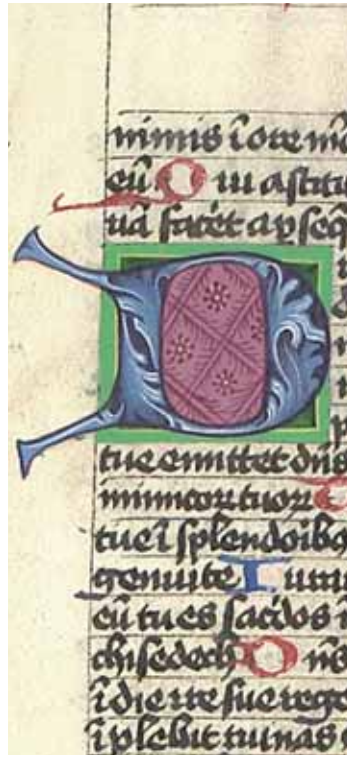 nimis ī ore me
eū Q ui astiti
uā facēt a ꝑseq̄
D
tue emittet dn̄s
inimicor tuoꝝ T
tue ī splendoib9
genui te I urau
eū tu es sacdos ī
chisedech D n̄s
ī die ire sue rege
īplebit ruinas